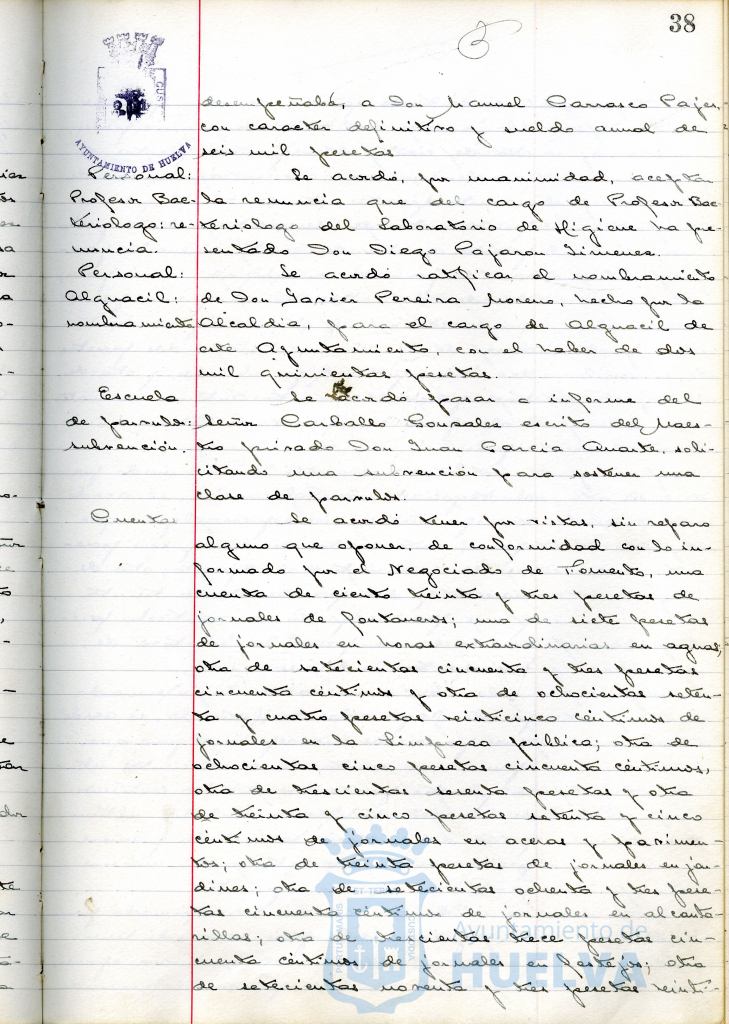 38
AYUNTAMIENTO DE HUELVA
desempeñaba, a Don Manuel Carrasco Pajes,
con caracter definitivo y sueldo anual de
seis mil pesetas
Personal:
Profesor Bac-
teriologo: re-
nuncia.
Se acordó, por unanimidad, aceptar
la renuncia que del cargo de Profesor Bac-
teriologo del Laboratorio de Higiene ha pre-
sentado Don Diego Pajaron Jimenez.
Personal:
Alguacil:
nombramiento
Se acordó ratificar el nombramiento
de Don Javier Pereira Moreno, hecho por la
Alcaldia, para el cargo de Alguacil de
este Ayuntamiento, con el haber de dos
mil quinientas pesetas.
Escuela
de parvulos:
subvención.
Se acordó pasar a informe del
Señor Carballo Gonzales escrito del Maes-
tro privado Don Juan Garcia Duarte, soli-
citando una subvención para sostener una
clase de parvulos.
Cuentas
Se acordó tener por vistas, sin reparo
alguno que oponer, de conformidad con lo in-
formado por el Negociado de Fomento, una
cuenta de ciento treinta y tres pesetas de
jornales de fontaneros; una de siete pesetas
de jornales en horas extraordinarias en aguas;
otra de setecientas cincuenta y tres pesetas
cincuenta céntimos y otra de ochocientas seten-
ta y cuatro pesetas veinticinco céntimos de
jornales en la limpieza pública; otra de
ochocientas cinco pesetas cincuenta céntimos,
otra de trescientas sesenta pesetas y otra
de treinta y cinco pesetas setenta y cinco
céntimos de jornales en aceras y pavimen-
tos; otra de treinta pesetas de jornales en jar-
dines; otra de setecientas ochenta y tres pese-
tas cincuenta céntimos de jornales en alcanta-
rillas; otra de trescientas trece pesetas cin-
cuenta céntimos de jornales en festejos; otra
de setecientas noventa y tres pesetas veinti-
Ayuntamiento de
HUELVA